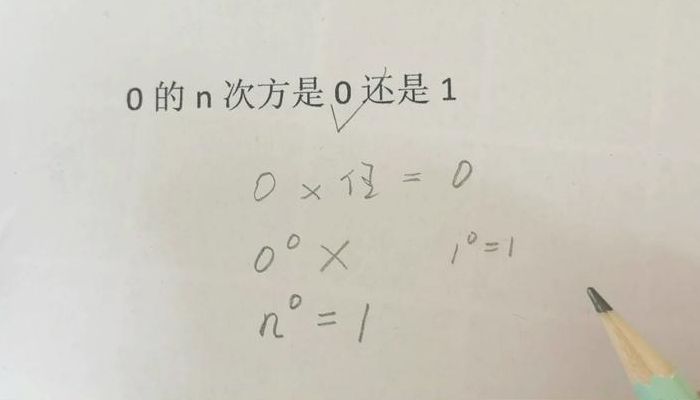 0 的 n 次方是 0 还是 1
0 × 任 = 0
0⁰ × 1⁰ = 1
n⁰ = 1